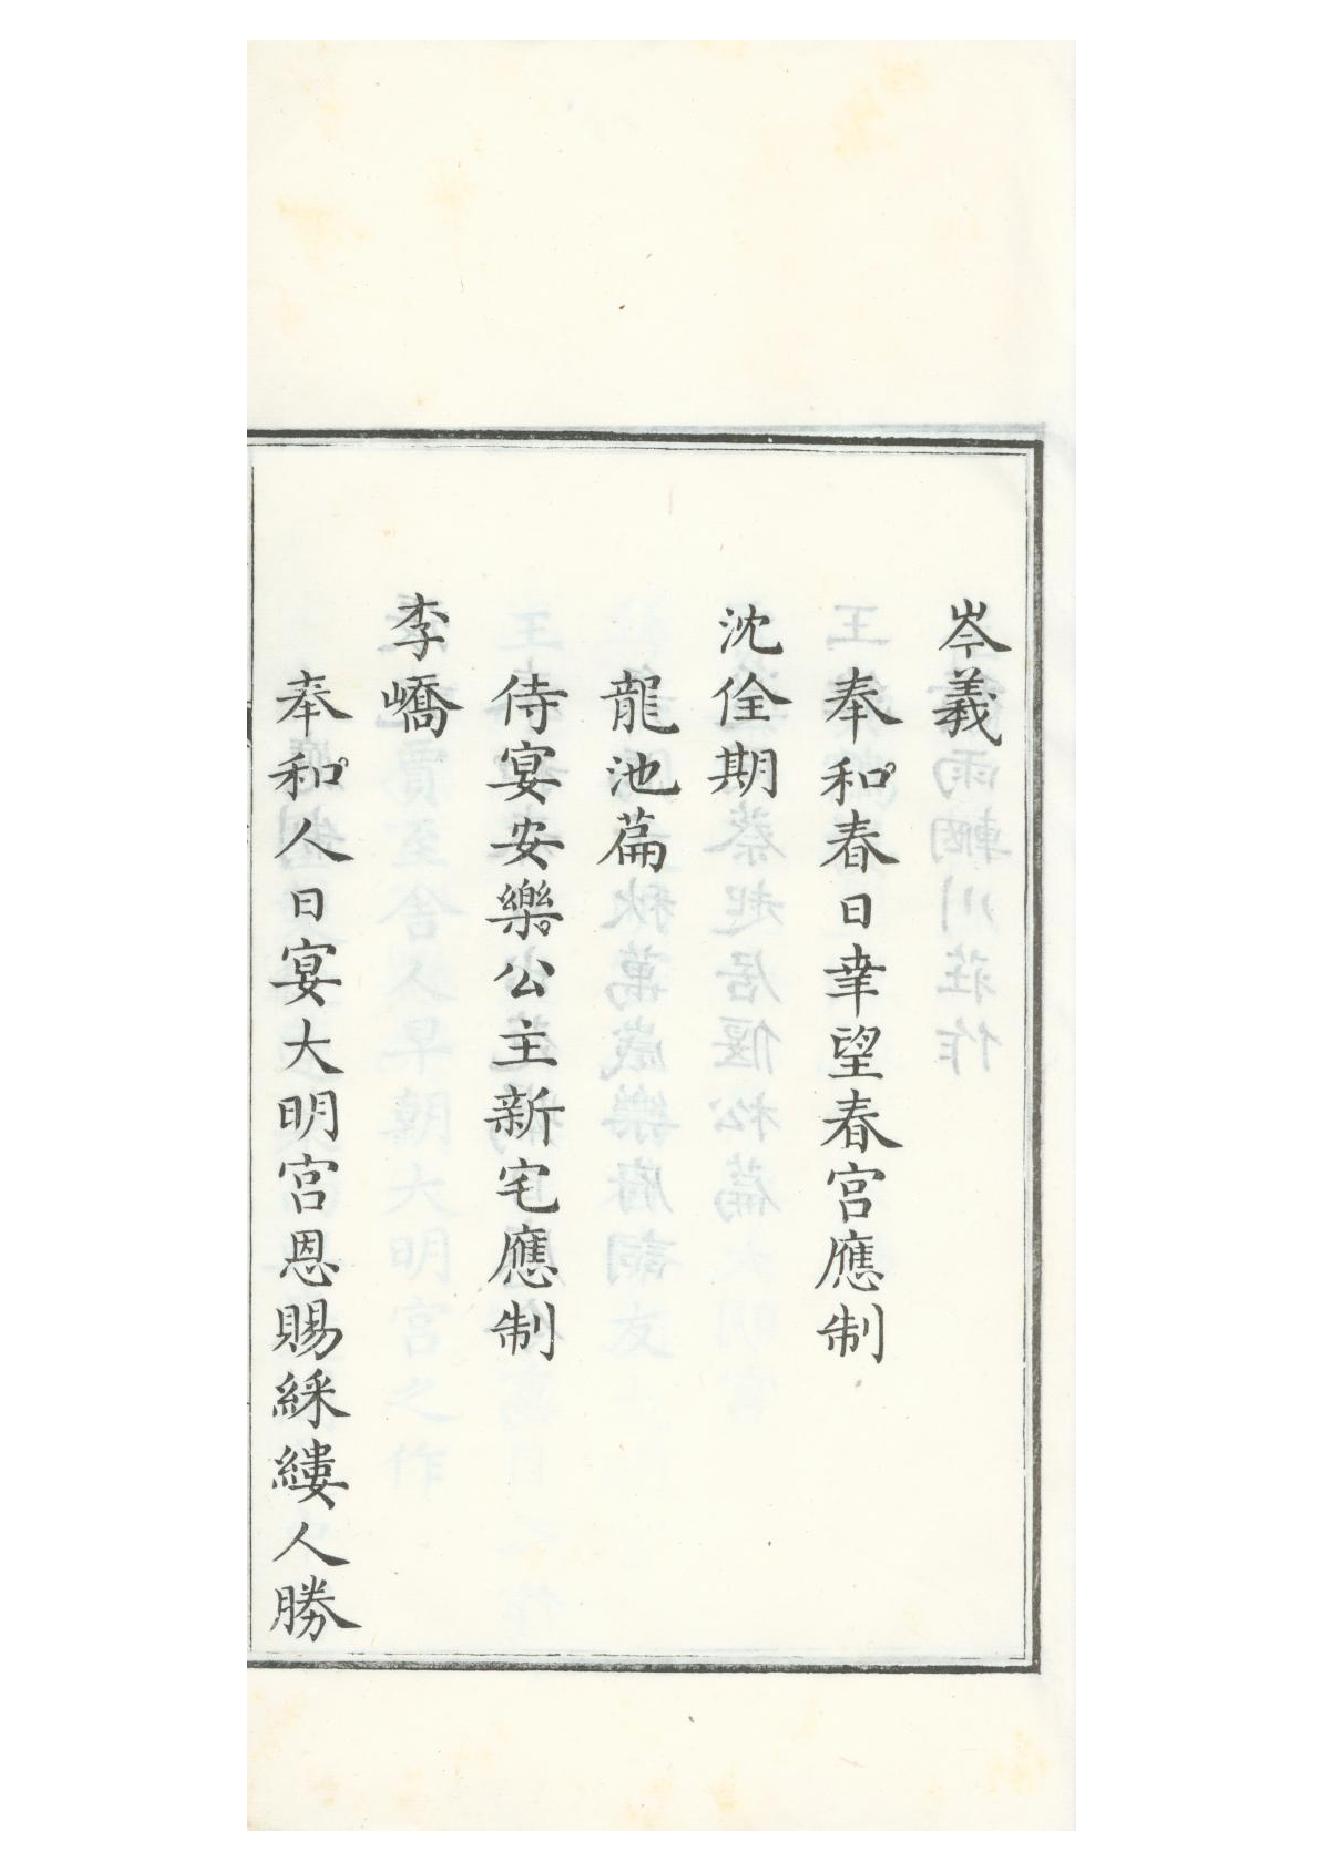 岑義
奉和春日幸望春宮應制
沈佺期
龍池篇
侍宴安樂公主新宅應制
李嶠
奉和人日宴大明宮恩賜綵縷人勝